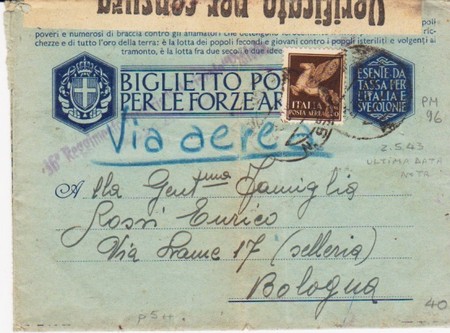 Verificato per censura
poveri e numerosi di braccia contro gli affamatori che
chezze e di tutto l'oro della terra: è la lotta dei popoli fecondi e giovani contro i popoli isteriliti e volgenti al
tramonto, è la lotta fra due secoli e due idee
BIGLIETTO PO
PER LE FORZE AR
ITALIA
POSTA AEREA
ESENTE DA
TASSA PER
L'ITALIA E
SUE COLONIE
PM
96
Via aerea
2.5.43
ULTIMA DATA
NOTA
Alla Gent.ma Famiglia
Rossi Enrico
Via Lame 17 (selleria)
Bologna
40